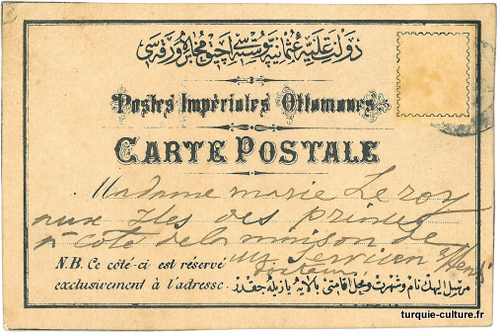 دولت علیهٔ عثمانیه پوسته‌سی ایچون مخابره ورقه‌سی
Postes Impériales Ottomanes
CARTE POSTALE
Madame Marie Leroy
aux Iles des princes
à côté de la maison de
Servicen Effendi
docteur
N.B. Ce côté-ci est réservé
exclusivement à l'adresse.
مرسل الیهك نام و شهرت و محل اقامتی بالایه یازیله جقدر
turquie-culture.fr